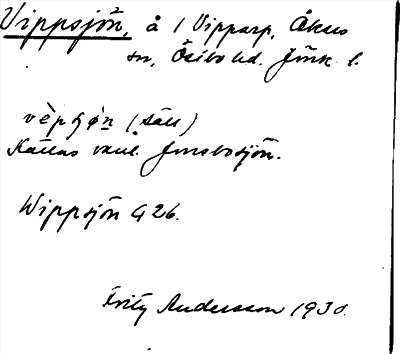 Vippsjön, å i Vipparp, Åkers
sn, Östbo hd. Jönk. l.
vèpʂǿn (säll)
Kallas vanl. Jonsbosjön.
Wippsjön G 26.
Fritz Andersson 1930.